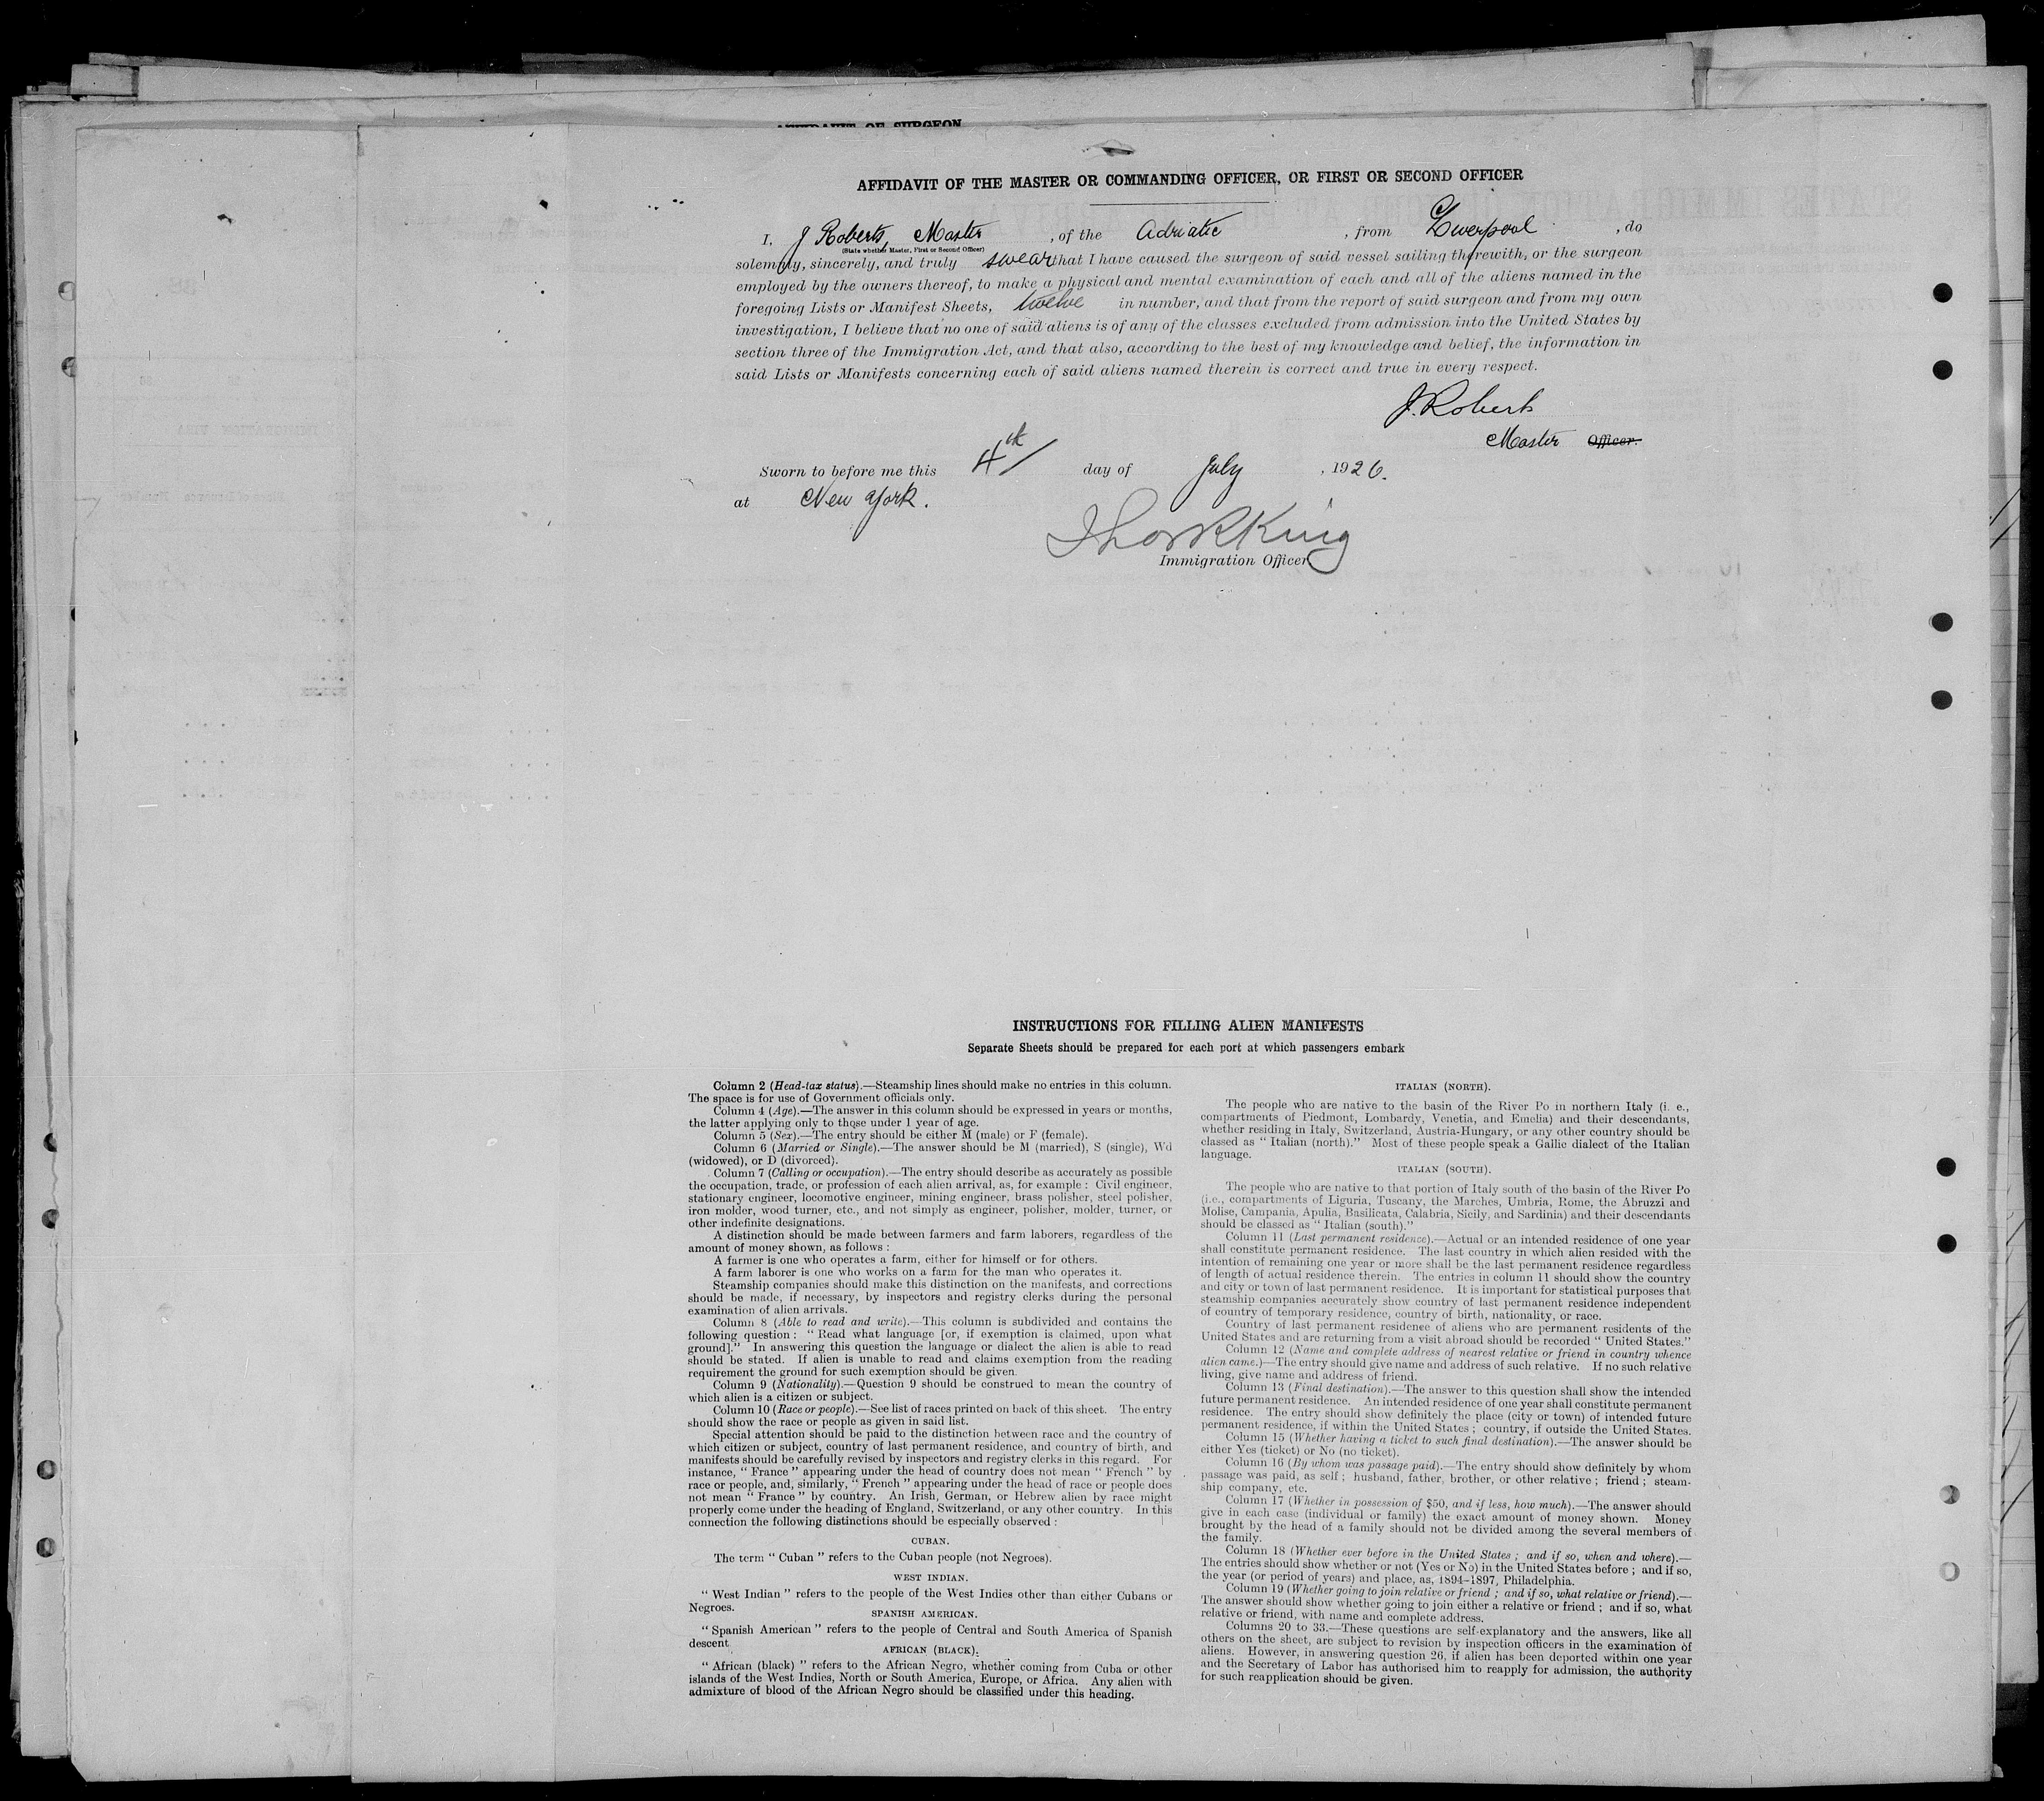 AFFIDAVIT OF SURGEON
AFFIDAVIT OF THE MASTER OR COMMANDING OFFICER, OR FIRST OR SECOND OFFICER
I, J Roberts, Master, of the Adriatic, from Liverpool, do
(State whether Master, First or Second Officer)
solemnly, sincerely, and truly swear that I have caused the surgeon of said vessel sailing therewith, or the surgeon
employed by the owners thereof, to make a physical and mental examination of each and all of the aliens named in the
foregoing Lists or Manifest Sheets, twelve in number, and that from the report of said surgeon and from my own
investigation, I believe that no one of said aliens is of any of the classes excluded from admission into the United States by
section three of the Immigration Act, and that also, according to the best of my knowledge and belief, the information in
said Lists or Manifests concerning each of said aliens named therein is correct and true in every respect.
J. Roberts
Master Officer.
Sworn to before me this 4th day of July, 1926.
at New York.
King
Immigration Officer
INSTRUCTIONS FOR FILLING ALIEN MANIFESTS
Separate Sheets should be prepared for each port at which passengers embark
Column 2 (Head-tax status).—Steamship lines should make no entries in this column.
The space is for use of Government officials only.
Column 4 (Age).—The answer in this column should be expressed in years or months,
the latter applying only to those under 1 year of age.
Column 5 (Sex).—The entry should be either M (male) or F (female).
Column 6 (Married or Single).—The answer should be M (married), S (single), Wd
(widowed), or D (divorced).
Column 7 (Calling or occupation).—The entry should describe as accurately as possible
the occupation, trade, or profession of each alien arrival, as, for example : Civil engineer,
stationary engineer, locomotive engineer, mining engineer, brass polisher, steel polisher,
iron molder, wood turner, etc., and not simply as engineer, polisher, molder, turner, or
other indefinite designations.
A distinction should be made between farmers and farm laborers, regardless of the
amount of money shown, as follows :
A farmer is one who operates a farm, either for himself or for others.
A farm laborer is one who works on a farm for the man who operates it.
Steamship companies should make this distinction on the manifests, and corrections
should be made, if necessary, by inspectors and registry clerks during the personal
examination of alien arrivals.
Column 8 (Able to read and write).—This column is subdivided and contains the
following question : “ Read what language [or, if exemption is claimed, upon what
ground].” In answering this question the language or dialect the alien is able to read
should be stated. If alien is unable to read and claims exemption from the reading
requirement the ground for such exemption should be given.
Column 9 (Nationality).—Question 9 should be construed to mean the country of
which alien is a citizen or subject.
Column 10 (Race or people).—See list of races printed on back of this sheet. The entry
should show the race or people as given in said list.
Special attention should be paid to the distinction between race and the country of
which citizen or subject, country of last permanent residence, and country of birth, and
manifests should be carefully revised by inspectors and registry clerks in this regard. For
instance, “ France ” appearing under the head of country does not mean “ French ” by
race or people, and, similarly, “ French ” appearing under the head of race or people does
not mean “ France ” by country. An Irish, German, or Hebrew alien by race might
properly come under the heading of England, Switzerland, or any other country. In this
connection the following distinctions should be especially observed :
CUBAN.
The term “ Cuban ” refers to the Cuban people (not Negroes).
WEST INDIAN.
“ West Indian ” refers to the people of the West Indies other than either Cubans or
Negroes.
SPANISH AMERICAN.
“ Spanish American ” refers to the people of Central and South America of Spanish
descent.
AFRICAN (BLACK).
“ African (black) ” refers to the African Negro, whether coming from Cuba or other
islands of the West Indies, North or South America, Europe, or Africa. Any alien with
admixture of blood of the African Negro should be classified under this heading.
ITALIAN (NORTH).
The people who are native to the basin of the River Po in northern Italy (i. e.,
compartments of Piedmont, Lombardy, Venetia, and Emelia) and their descendants,
whether residing in Italy, Switzerland, Austria-Hungary, or any other country should be
classed as “ Italian (north).” Most of these people speak a Gallic dialect of the Italian
language.
ITALIAN (SOUTH).
The people who are native to that portion of Italy south of the basin of the River Po
(i.e., compartments of Liguria, Tuscany, the Marches, Umbria, Rome, the Abruzzi and
Molise, Campania, Apulia, Basilicata, Calabria, Sicily, and Sardinia) and their descendants
should be classed as “ Italian (south).”
Column 11 (Last permanent residence).—Actual or an intended residence of one year
shall constitute permanent residence. The last country in which alien resided with the
intention of remaining one year or more shall be the last permanent residence regardless
of length of actual residence therein. The entries in column 11 should show the country
and city or town of last permanent residence. It is important for statistical purposes that
steamship companies accurately show country of last permanent residence independent
of country of temporary residence, country of birth, nationality, or race.
Country of last permanent residence of aliens who are permanent residents of the
United States and are returning from a visit abroad should be recorded “ United States.”
Column 12 (Name and complete address of nearest relative or friend in country whence
alien came.)—The entry should give name and address of such relative. If no such relative
living, give name and address of friend.
Column 13 (Final destination).—The answer to this question shall show the intended
future permanent residence. An intended residence of one year shall constitute permanent
residence. The entry should show definitely the place (city or town) of intended future
permanent residence, if within the United States ; country, if outside the United States.
Column 15 (Whether having a ticket to such final destination).—The answer should be
either Yes (ticket) or No (no ticket).
Column 16 (By whom was passage paid).—The entry should show definitely by whom
passage was paid, as self ; husband, father, brother, or other relative ; friend ; steam-
ship company, etc.
Column 17 (Whether in possession of $50, and if less, how much).—The answer should
give in each case (individual or family) the exact amount of money shown. Money
brought by the head of a family should not be divided among the several members of
the family.
Column 18 (Whether ever before in the United States ; and if so, when and where).—
The entries should show whether or not (Yes or No) in the United States before ; and if so,
the year (or period of years) and place, as, 1894-1897, Philadelphia.
Column 19 (Whether going to join relative or friend ; and if so, what relative or friend).—
The answer should show whether going to join either a relative or friend ; and if so, what
relative or friend, with name and complete address.
Columns 20 to 33.—These questions are self-explanatory and the answers, like all
others on the sheet, are subject to revision by inspection officers in the examination of
aliens. However, in answering question 26, if alien has been deported within one year
and the Secretary of Labor has authorised him to reapply for admission, the authority
for such reapplication should be given.